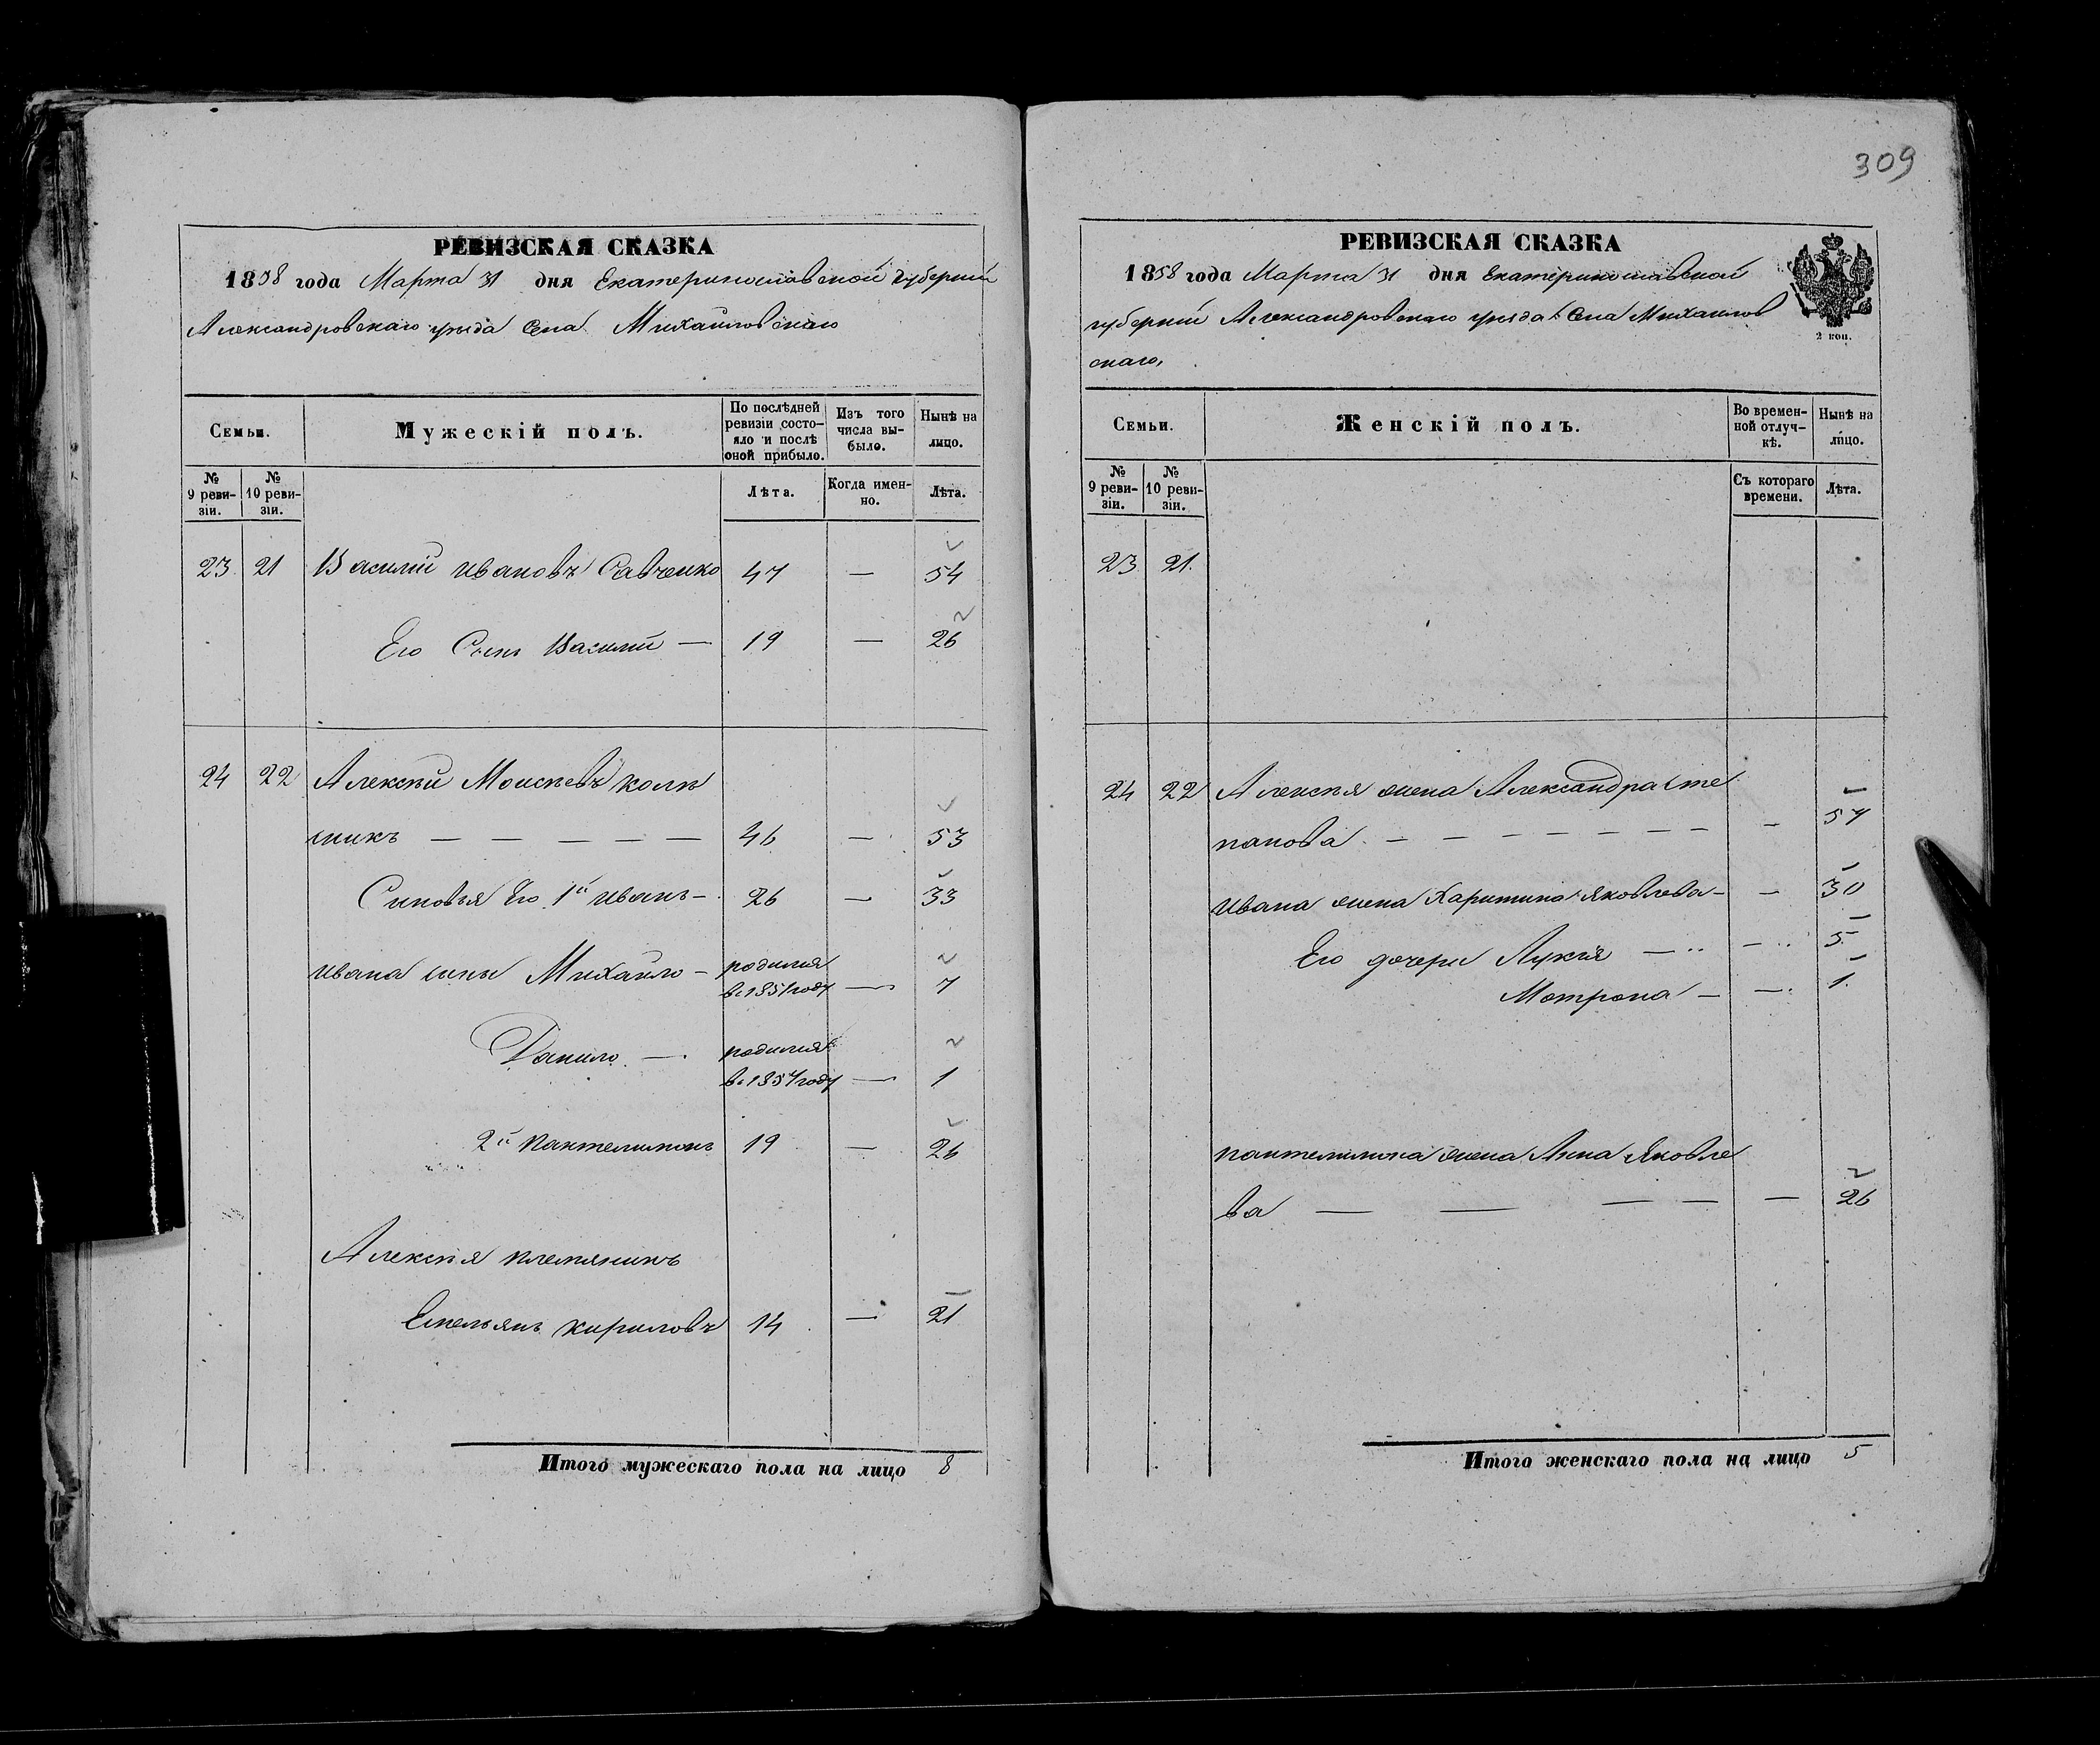 309
РЕВИЗСКАЯ СКАЗКА
1858 года Марта 31 дня Екатеринославской губернии
Александровскаго уезда Села Михайловскаго
Семьи.
Мужескій полъ.
По послѣдней ревизіи состояло и послѣ оной прибыло.
Изъ того числа выбыло.
Нынѣ на лицо.
№ 9 ревизіи.
№ 10 ревизіи.
Лѣта.
Когда именно.
Лѣта.
23 21 Василій Ивановъ Савченко 47 — 54
Его Сынъ Василій — 19 — 26
24 22 Алексѣй Моисѣевъ колѣ
сникъ — — — — — 46 — 53
Синовья Его 1й Иванъ — 26 — 33
Ивана сины Михайло — родился
в. 1851 году — 7
Данило — родился
в. 1857 году — 1
2й Пантелимонъ 19 — 26
Алексѣя племяникъ
Емельянъ Кириловъ 14 — 21
Итого мужескаго пола на лицо 8
РЕВИЗСКАЯ СКАЗКА
1858 года Марта 31 дня Екатеринославской
губернии Александровскаго уезда Села Михайлов
скаго,
2 коп.
Семьи.
Женскій полъ.
Во временной отлучкѣ.
Нынѣ на лицо.
№ 9 ревизіи.
№ 10 ревизіи.
Съ котораго времени.
Лѣта.
23 21.
24 22 Алексѣя жена Александра Сте
панова — — — — — — — — 57
Ивана жена Харитина Яковлева — — 30
Его дочери Лукія — — 5
Мотрона — — 1.
Пантелимона жена Анна Яковле
ва — — — — — 26
Итого женскаго пола на лицо 5